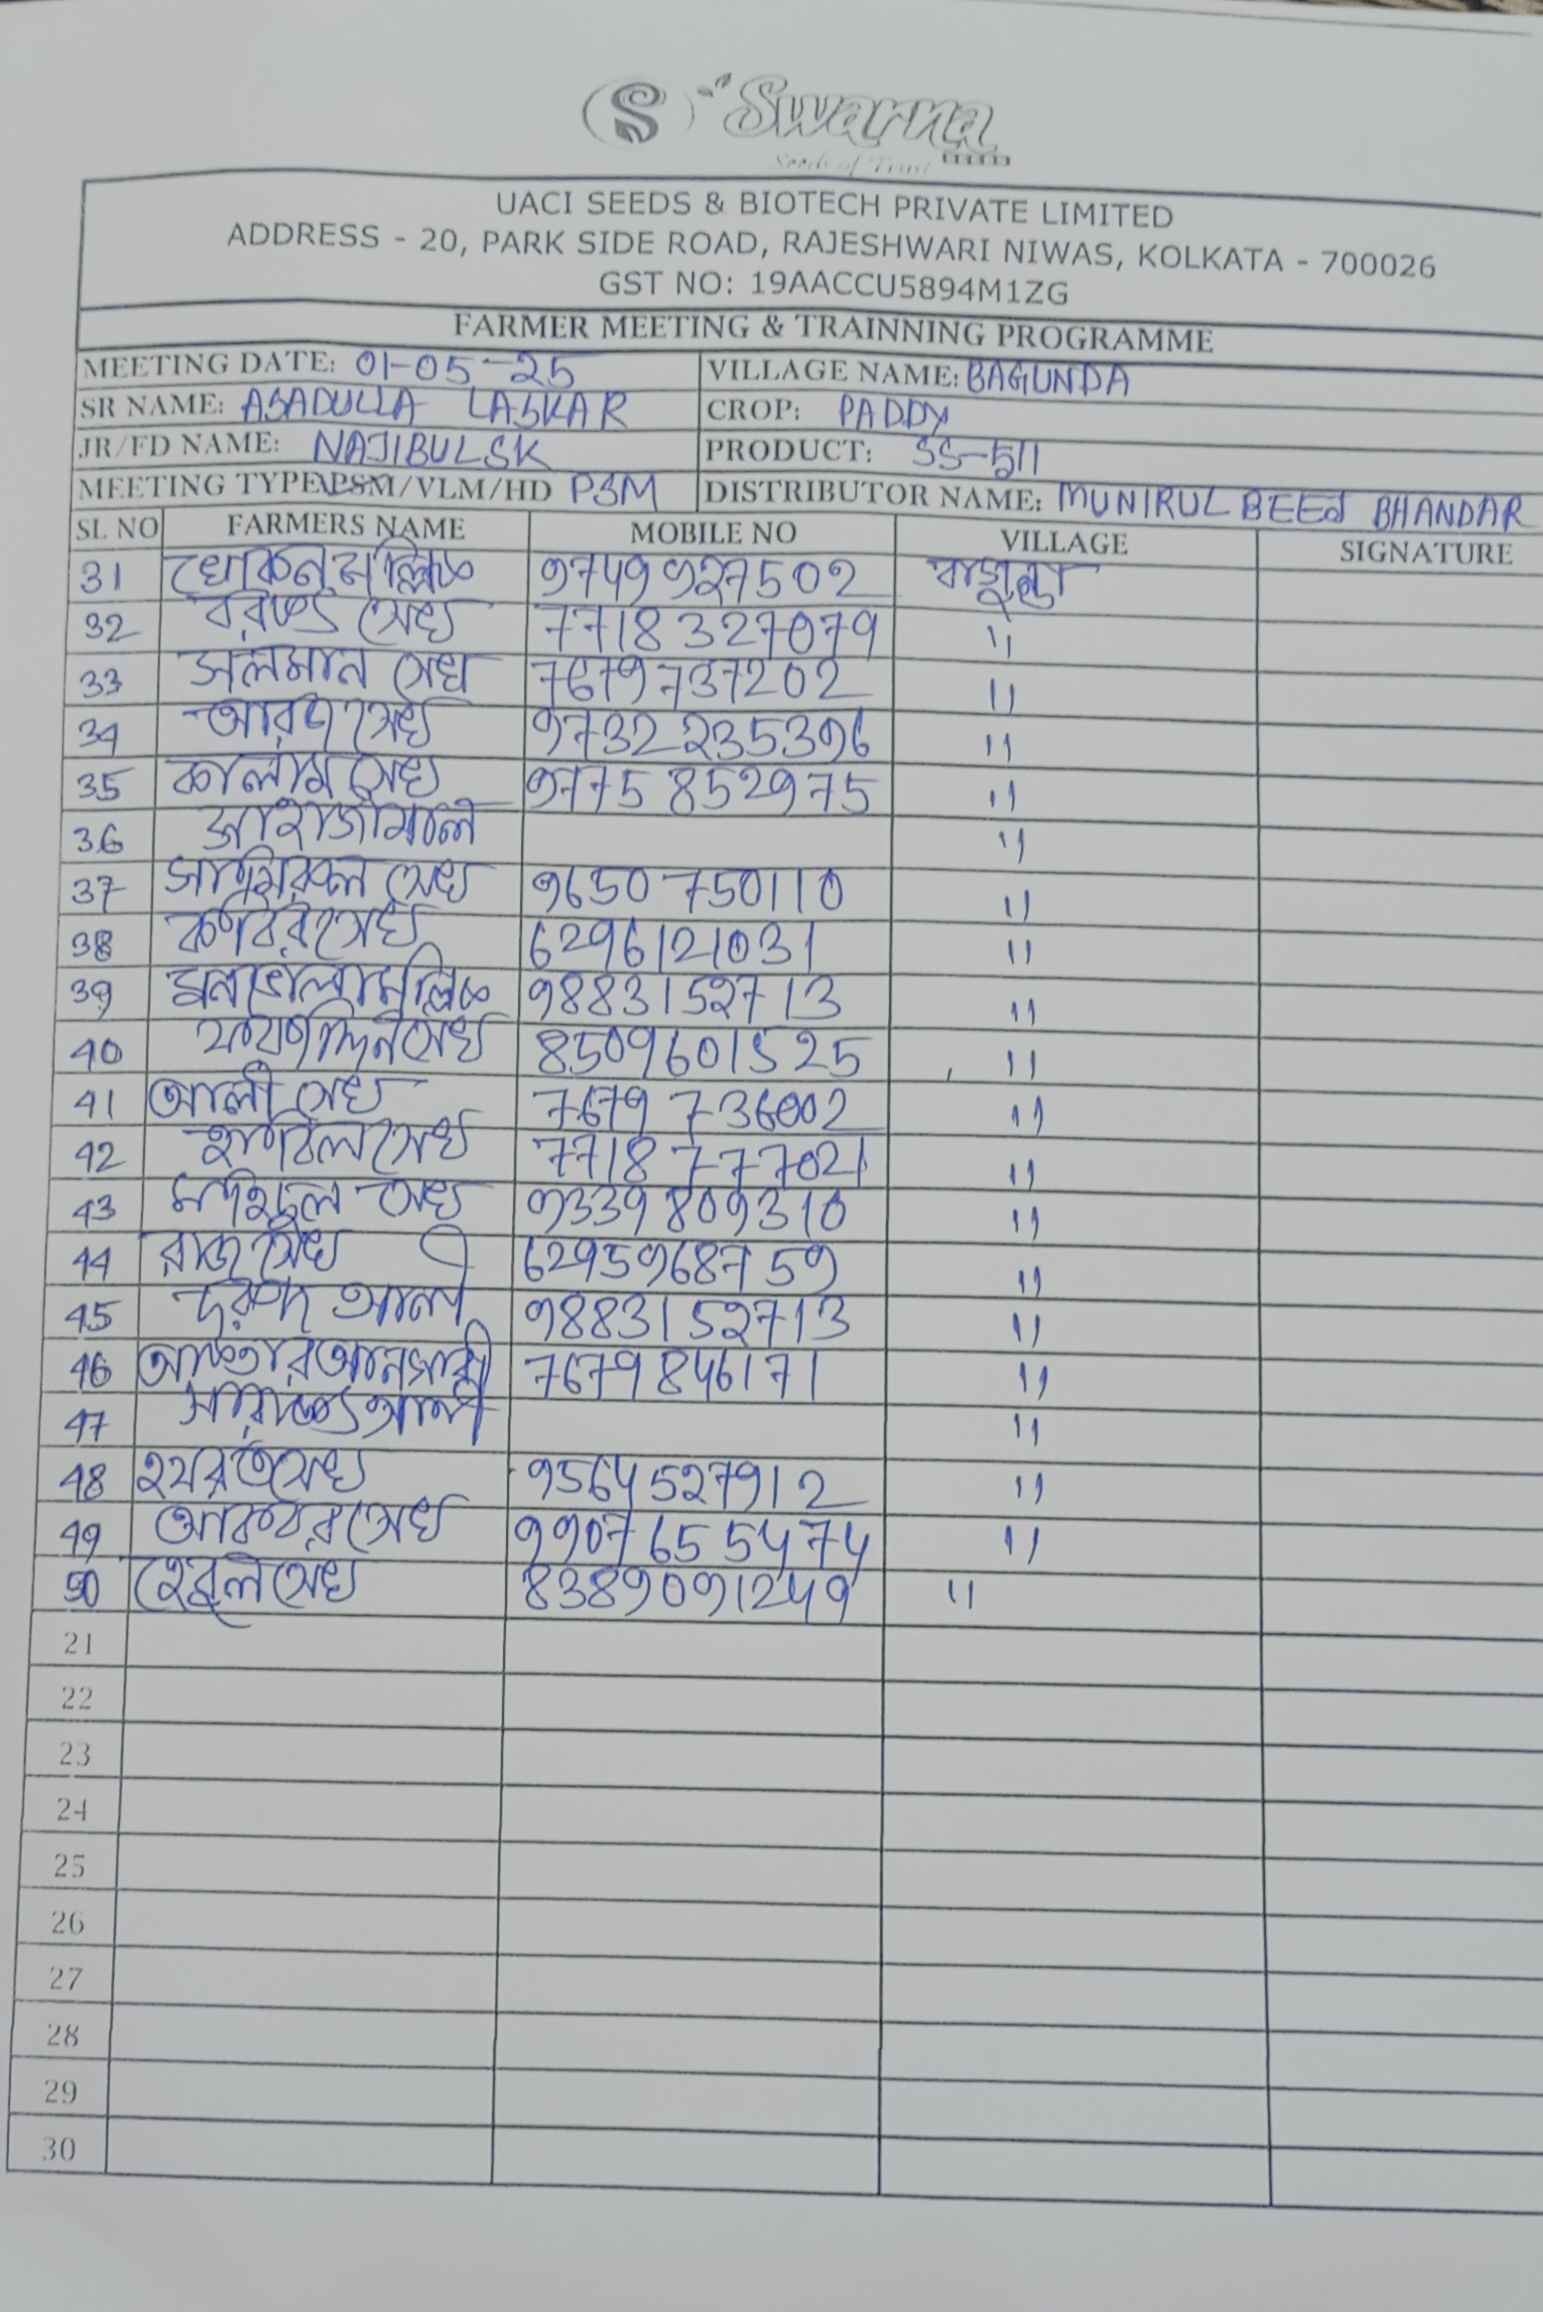 Swarna
Seeds of Trust
UACI SEEDS & BIOTECH PRIVATE LIMITED
ADDRESS - 20, PARK SIDE ROAD, RAJESHWARI NIWAS, KOLKATA - 700026
GST NO: 19AACCU5894M1ZG
FARMER MEETING & TRAINNING PROGRAMME
MEETING DATE: 01-05-25 VILLAGE NAME: BAGUNDA
SR NAME: ASADULLA LASKAR CROP: PADDY
JR/FD NAME: NAJIBUL SK PRODUCT: SS-511
MEETING TYPE PSM/VLM/HD PSM DISTRIBUTOR NAME: MUNIRUL BEEJ BHANDAR
SL NO FARMERS NAME MOBILE NO VILLAGE SIGNATURE
31 খোকন মল্লিক 9749927502
32 সেখ 7718327079 "
33 সলমান সেখ 7679737202 "
34 সেখ 9732235396 "
35 কালাম সেখ 9775852975 "
36 "
37 সেখ 9650750110 "
38 কবির সেখ 6296121031 "
39 মল্লিক 9883152713 "
40 সেখ 8509601525 "
41 আলী সেখ 7679736002 "
42 সেখ 7718777021 "
43 সেখ 9339809310 "
44 রাজ সেখ 6295968759 "
45 আলী 9883152713 "
46 আনসারী 7679846171 "
47 আলী "
48 হযরত সেখ 9564527912 "
49 আকবর সেখ 9907655474 "
50 সেখ 8389091249 "
21
22
23
24
25
26
27
28
29
30